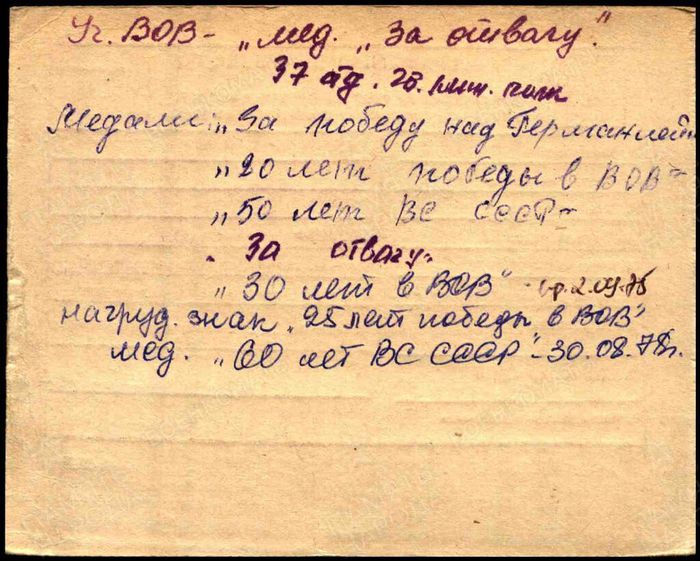 Уч. ВОВ - „мед. „За отвагу."
37 отд. зен. полк
Медали: „За победу над Германией"
„20 лет победы в ВОВ"
„50 лет ВС СССР"
„За отвагу"
„30 лет в ВОВ" - вр. 2.09.75
нагруд. знак „25 лет победы в ВОВ"
мед. „60 лет ВС СССР" - 30.08.78г.